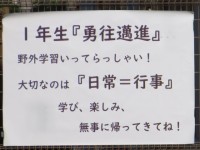 1年生『勇往邁進』
野外学習いってらっしゃい！
大切なのは『日常＝行事』
学び、楽しみ、
無事に帰ってきてね！